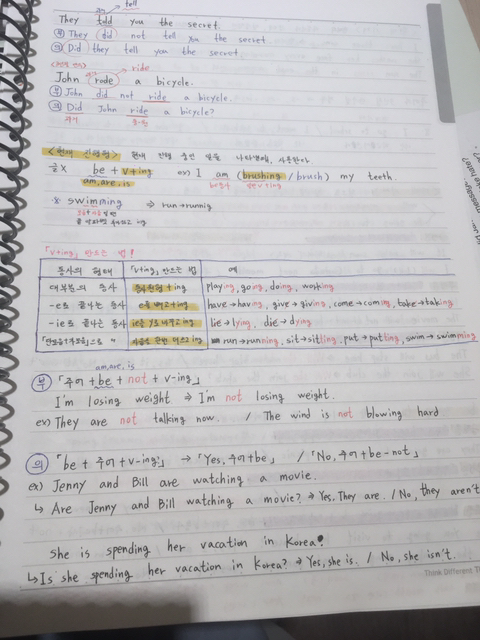 과거 tell
They told you the secret.
부 They did not tell you the secret
의 Did they tell you the secret.
ride
John rode a bicycle.
부 John did not ride a bicycle.
의 Did John ride a bicycle?
과거
<현재 진행형> 현재 진행 중인 일을 나타낼때, 사용한다.
be + v+ing ex) I am (brushing / brush) my teeth.
am, are, is be동사
※ swimming ⇒ run→runnig
「v+ing」 만드는 법!
동사의 형태 「v+ing」 만드는 법 예
대부분의 동사 동사원형+ing playing, going, doing, working
-e로 끝나는 동사 e를 빼고+ing have→having, give→giving, come→coming, take→taking
-ie로 끝나는 동사 ie를 y로 바꾸고 ing lie→lying, die→dying
「단모음+단자음」으로 〃 run→running, sit→sitting, put→putting, swim→swimming
am, are, is
부 「주어+be+not+v-ing」
I'm losing weight ⇒ I'm not losing weight.
ex) They are not talking now. / The wind is not blowing hard
의 「be+주어+v-ing」 → 「Yes, 주어+be」 / 「No, 주어+be-not」
ex) Jenny and Bill are watching a movie.
↳ Are Jenny and Bill watching a movie? ⇒ Yes, They are. / No, they aren't
she is spending her vacation in Korea.
↳ Is she spending her vacation in Korea? ⇒ Yes, she is. / No, she isn't.
Think Different